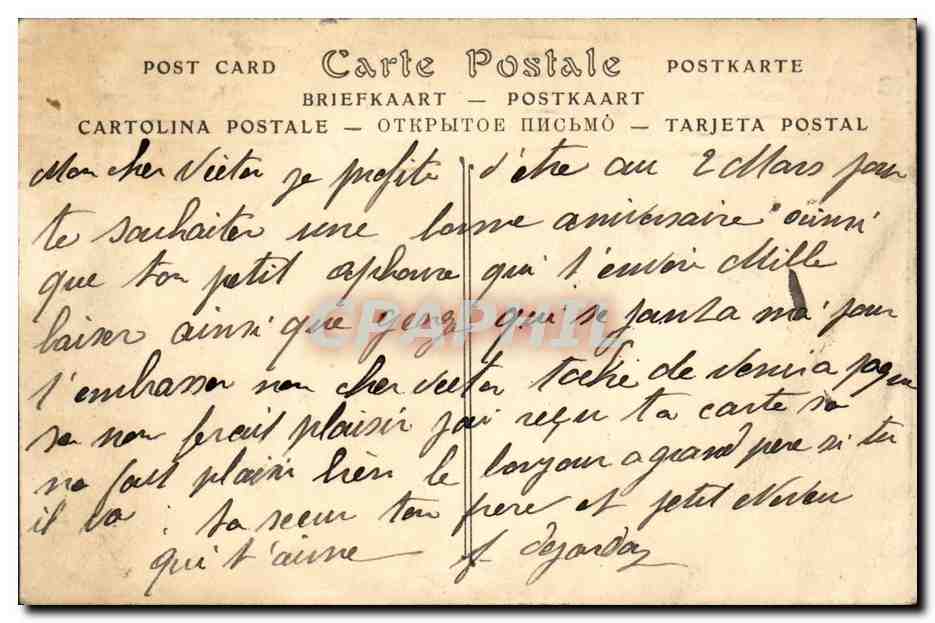 POST CARD Carte Postale POSTKARTE
BRIEFKAART — POSTKAART
CARTOLINA POSTALE — ОТКРЫТОЕ ПИСЬМО — TARJETA POSTAL
Mon cher Victor je profite d'être au 2 Mars pour
te souhaiter une bonne aniversaire ainsi
que ton petit qui t'envoie Mille
baiser ainsi que qui se jouta ma pour
t'embrasser mon cher Victor tache de venir a paque
sa nou ferait plaisir jai reçu ta carte sa
ma fait plaisir bien le bonjour a grand pere si tu
il va : ta seeur ton frere et petit Neveu
qui t'aime
CPAPHIL